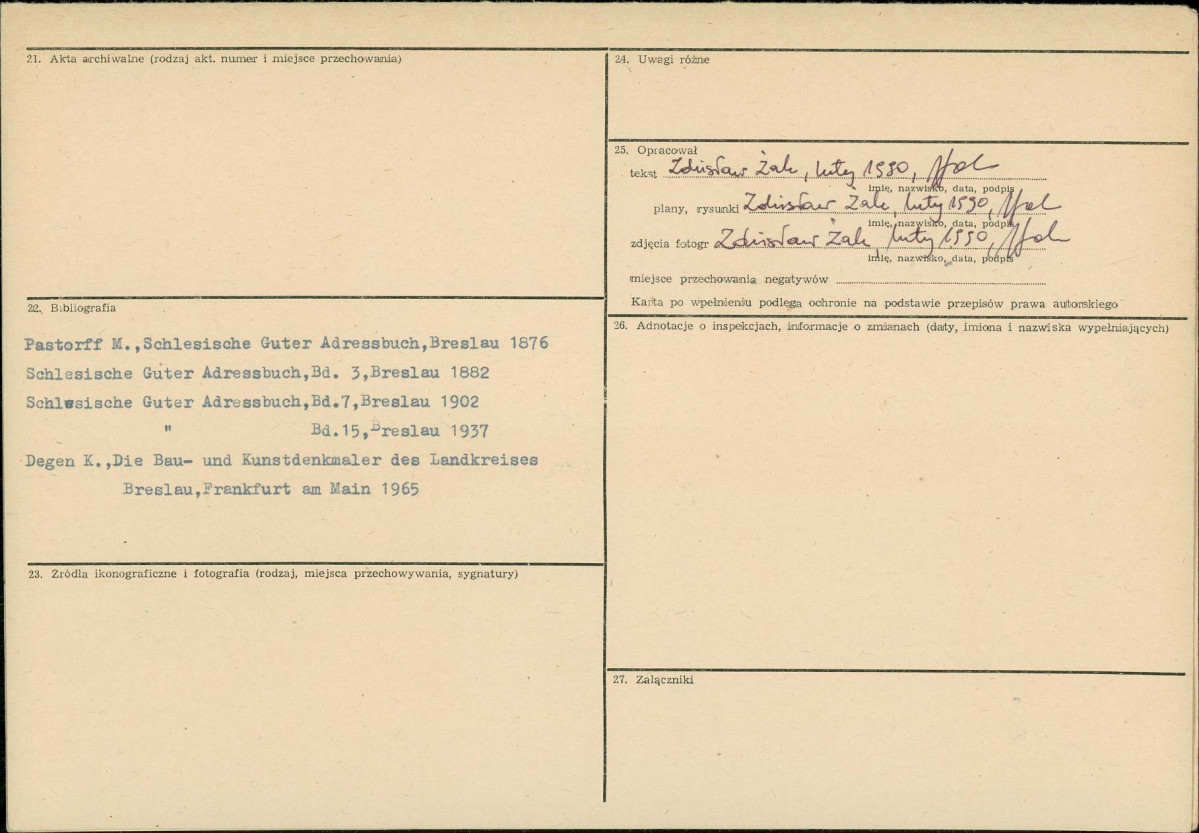 21. Akta archiwalne (rodzaj akt. numer i miejsce przechowania)
22. Bibliografia
Pastorff M.,Schlesische Guter Adressbuch,Breslau 1876
Schlesische Guter Adressbuch,Bd. 3,Breslau 1882
Schlesische Guter Adressbuch,Bd.7,Breslau 1902
" Bd.15,Breslau 1937
Degen K.,Die Bau- und Kunstdenkmaler des Landkreises
Breslau,Frankfurt am Main 1965
23. Zródła ikonograficzne i fotografia (rodzaj, miejsca przechowywania, sygnatury)
24. Uwagi różne
25. Opracował
tekst Zdzisław Żak, luty 1990,
imię, nazwisko, data, podpis
plany, rysunki Zdzisław Żak, luty 1990,
imię, nazwisko, data, podpis
zdjęcia fotogr Zdzisław Żak, luty 1990,
imię, nazwisko, data, podpis
miejsce przechowania negatywów
Karta po wpełnieniu podlega ochronie na podstawie przepisów prawa autorskiego
26. Adnotacje o inspekcjach, informacje o zmianach (daty, imiona i nazwiska wypełniających)
27. Załączniki